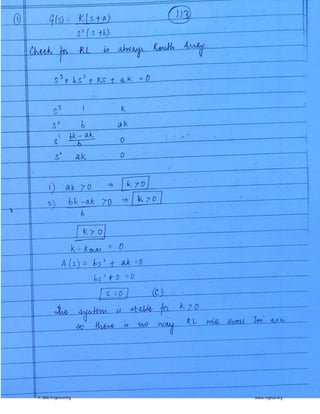 113
① G(s) = K(s+a)
s²(s+b)
Check for RL is always Routh Array.
s³ + bs² + Ks + ak = 0
s³ 1 k
s² b ak
s¹ bk-ak / b 0
s⁰ ak 0
1) ak > 0 ⇒ k > 0
2) bk - ak > 0 ⇒ k > 0
b
k > 0
k = kmar = 0
A(s) = bs² + ak = 0
bs² + 0 = 0
s = 0 (c)
The system is stable for k > 0
so there is no way RL will cross Im axis
© Wiki Engineering www.raghul.org